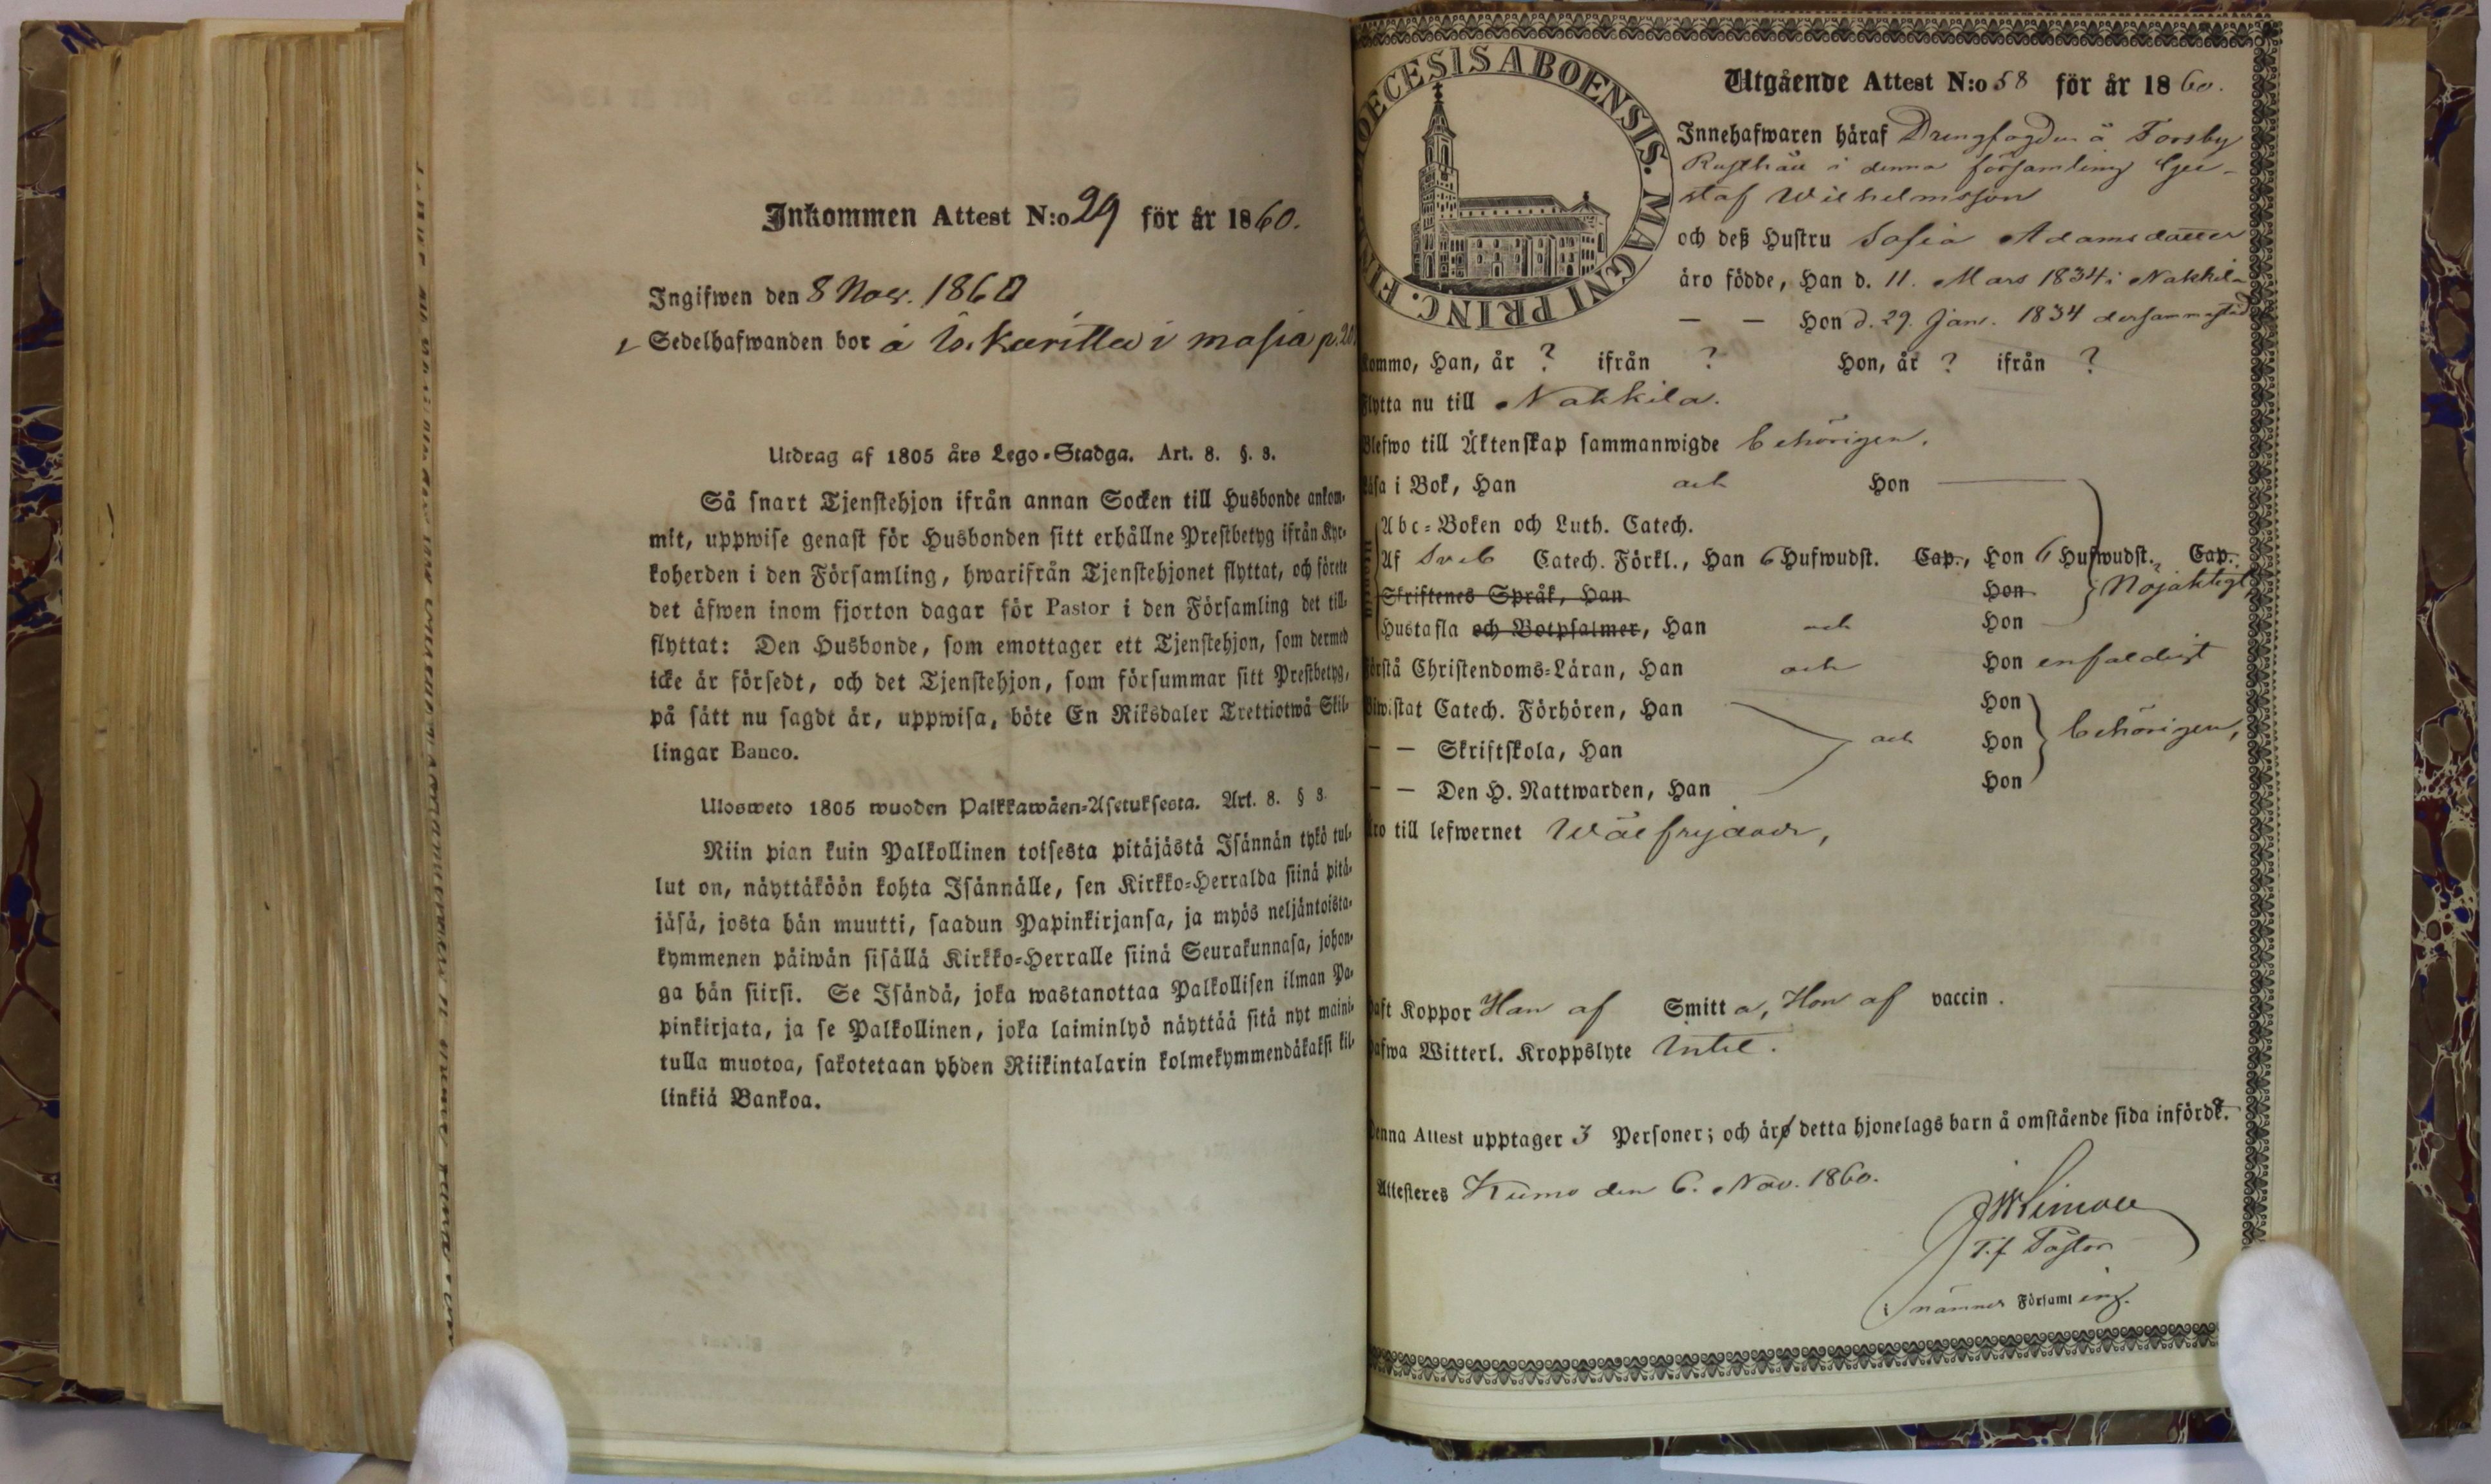 Inkommen Attest N:o 29 för år 1860.
Ingifwen den 8 Nov. 1860
Sedelhafwanden bor å
Utdrag af 1805 års Lego-Stadga. Art. 8. §. 3.
Så snart Tjenstehjon ifrån annan Socken till Husbonde ankom-
mit, uppwise genast för Husbonden sitt erhållne Prestbetyg ifrån Kyr-
koherden i den Församling, hwarifrån Tjenstehjonet flyttat, och förete
det äfwen inom fjorton dagar för Pastor i den Församling det till-
flyttat: Den Husbonde, som emottager ett Tjenstehjon, som dermed
icke är försedt, och det Tjenstehjon, som försummar sitt Prestbetyg,
på sätt nu sagdt är, uppwisa, böte En Riksdaler Trettiotwå Skil-
lingar Banco.
Ulosweto 1805 wuoden Palkkawäen-Asetuksesta. Art. 8. § 3.
Niin pian kuin Palkollinen toisesta pitäjästä Isännän tykö tul-
lut on, näyttäköön kohta Isännälle, sen Kirkko-Herralda siinä pitä-
jäsä, josta hän muutti, saadun Papinkirjansa, ja myös neljäntoista-
kymmenen päiwän sisällä Kirkko-Herralle siinä Seurakunnasa, johon-
ga hän siirsi. Se Isändä, joka wastanottaa Palkollisen ilman Pa-
pinkirjata, ja se Palkollinen, joka laiminlyö näyttää sitä nyt maini-
tulla muotoa, sakotetaan yhden Riikintalarin kolmekymmendäkaksi kil-
linkiä Bankoa.
DIOECESIS ABOENSIS. MAGNI PRINC. FINL
Utgående Attest N:o 58 för år 1860.
Innehafwaren häraf Drengfogden å Forsby
Rusthåll i denna församling Gu-
staf Wilhelmsson
och deß Hustru Sofia Adamsdotter
äro födde, Han d. 11. Mars 1834 i Nakkila
— — Hon d. 29. Jan. 1834 dersammastäd
kommo, Han, år ? ifrån ? Hon, år ? ifrån ?
flytta nu till Nakkila.
Blefwo till Äktenskap sammanwigde behörigen.
Läsa i Bok, Han och Hon
Abc-Boken och Luth. Catech.
Af Sveb Catech. Förkl., Han 6 Hufwudst. Cap., Hon 6 Hufwudst., Cap.
Skriftenes Språk, Han Hon Nöjaktigt
Hustafla och Botpsalmer, Han och Hon
Förstå Christendoms-Läran, Han och Hon enfaldigt
Biwistat Catech. Förhören, Han Hon
— — Skriftskola, Han och Hon behörigen,
— — Den H. Nattwarden, Han Hon
äro till lefwernet Wälfrejdade,
Haft Koppor Han af Smitta, Hon af vaccin.
Hafwa Witterl. Kroppslyte Intet.
Denna Attest upptager 3 Personer; och är detta hjonelags barn å omstående sida infördt.
Attesteres Kumo den 6. Nov. 1860.
T.f. Pastor
i nämnde Församling.